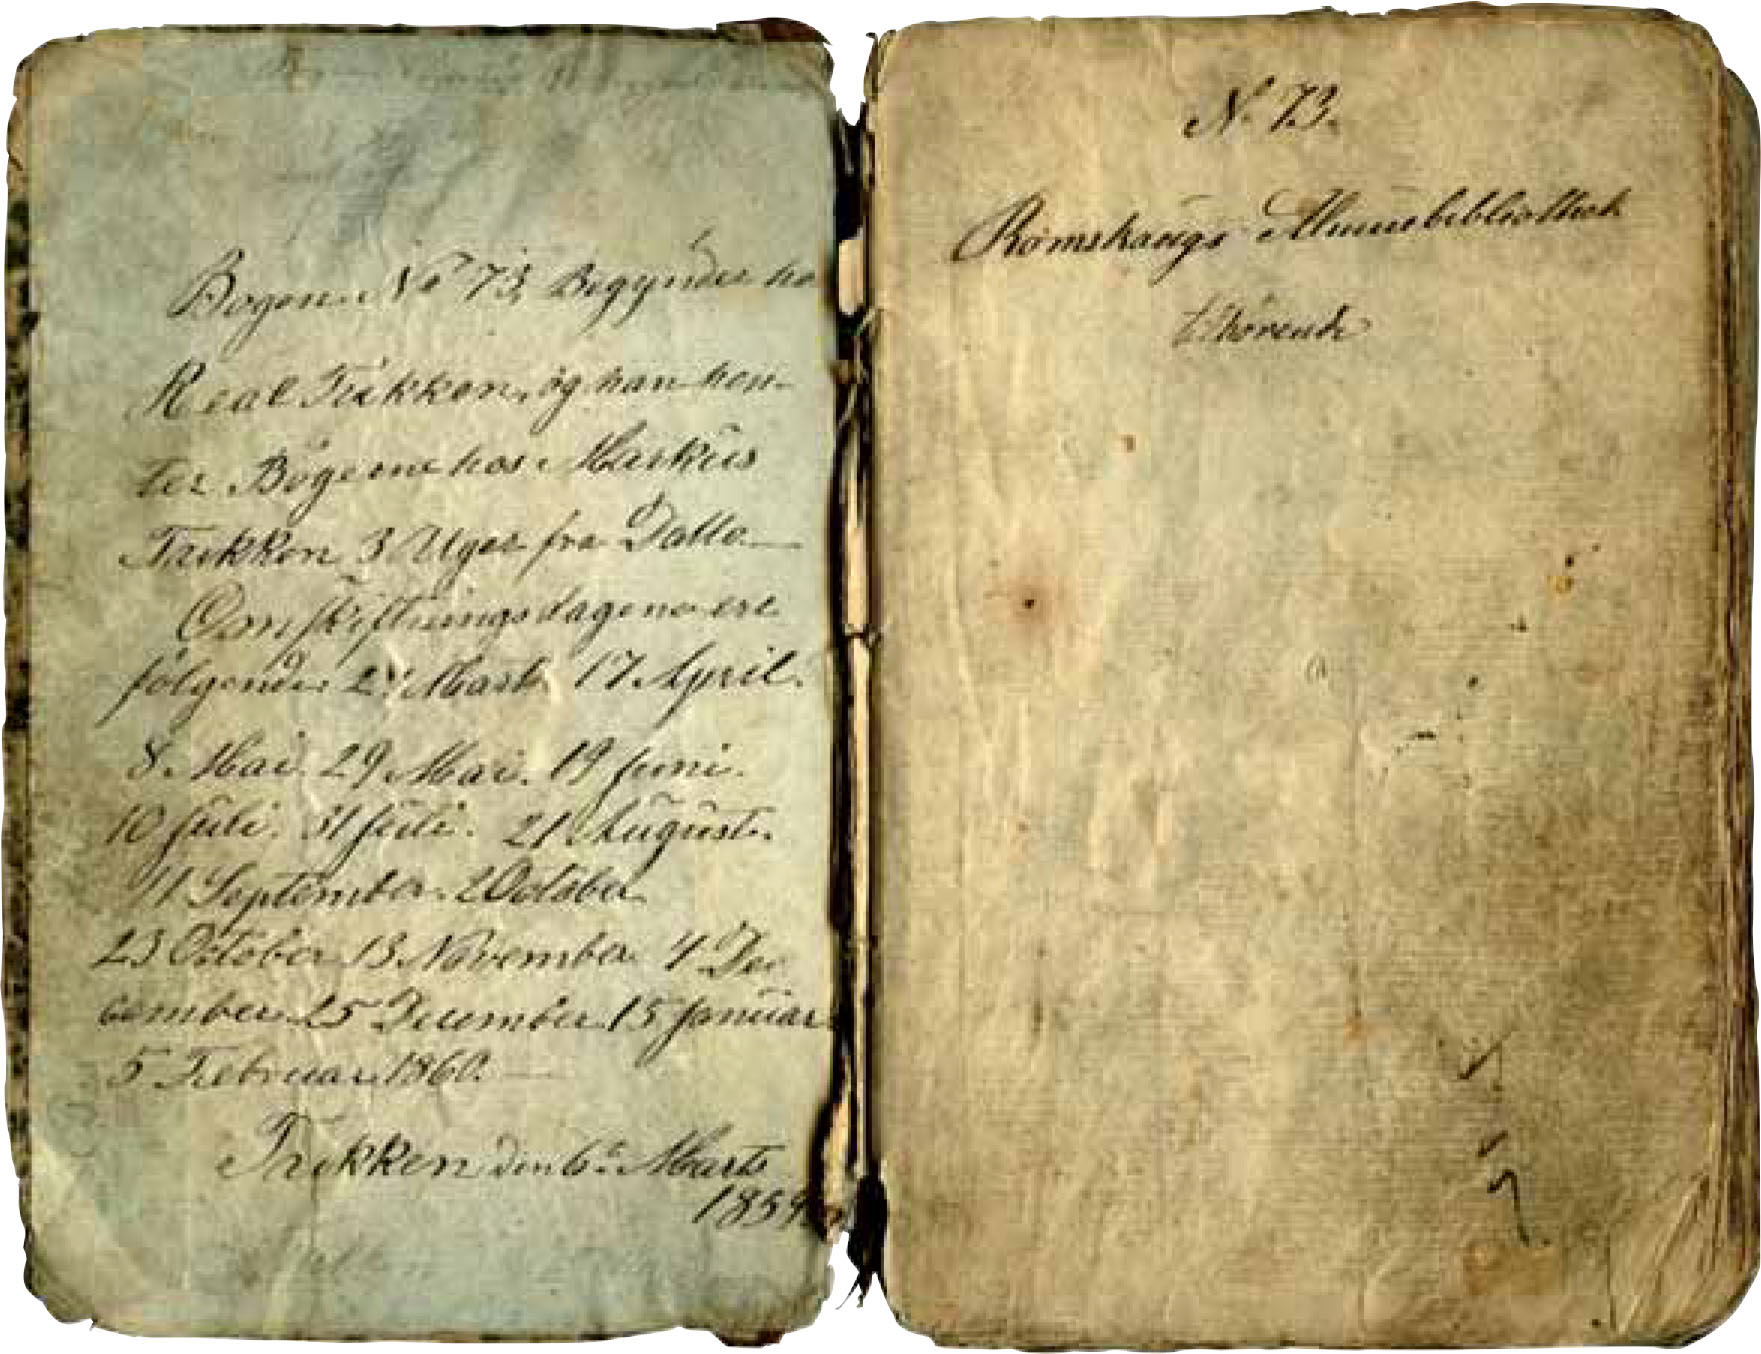 Bogen No 73 Begynder ho
Real Trekken, og han hen-
ter Bøgerne hos Markus
Trekken 3 Uger fra Datto
Omskiftningsdagene ere
følgende 27 Marts 17 April.
8 Mai. 29 Mai. 19 Juni.
10 Juli. 31 Juli. 21 August.
11 September. 2 October
23 October 13 November 4 De
cember 25 December 15 Januar
5 Februar 1860.
Trekken den 6te Marts
1859
N. 73.
Rømskougs Almuebibliothek
tilhørende